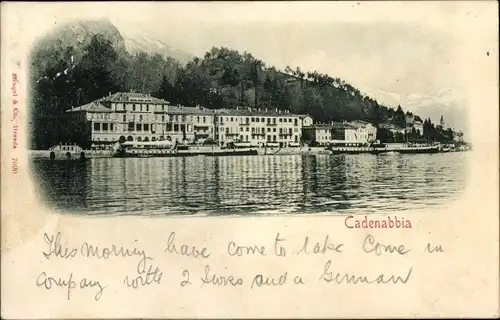 Stengel & Co., Dresden 7060
Cadenabbia
This morning have come to lake Como in
company with 2 Swiss and a German